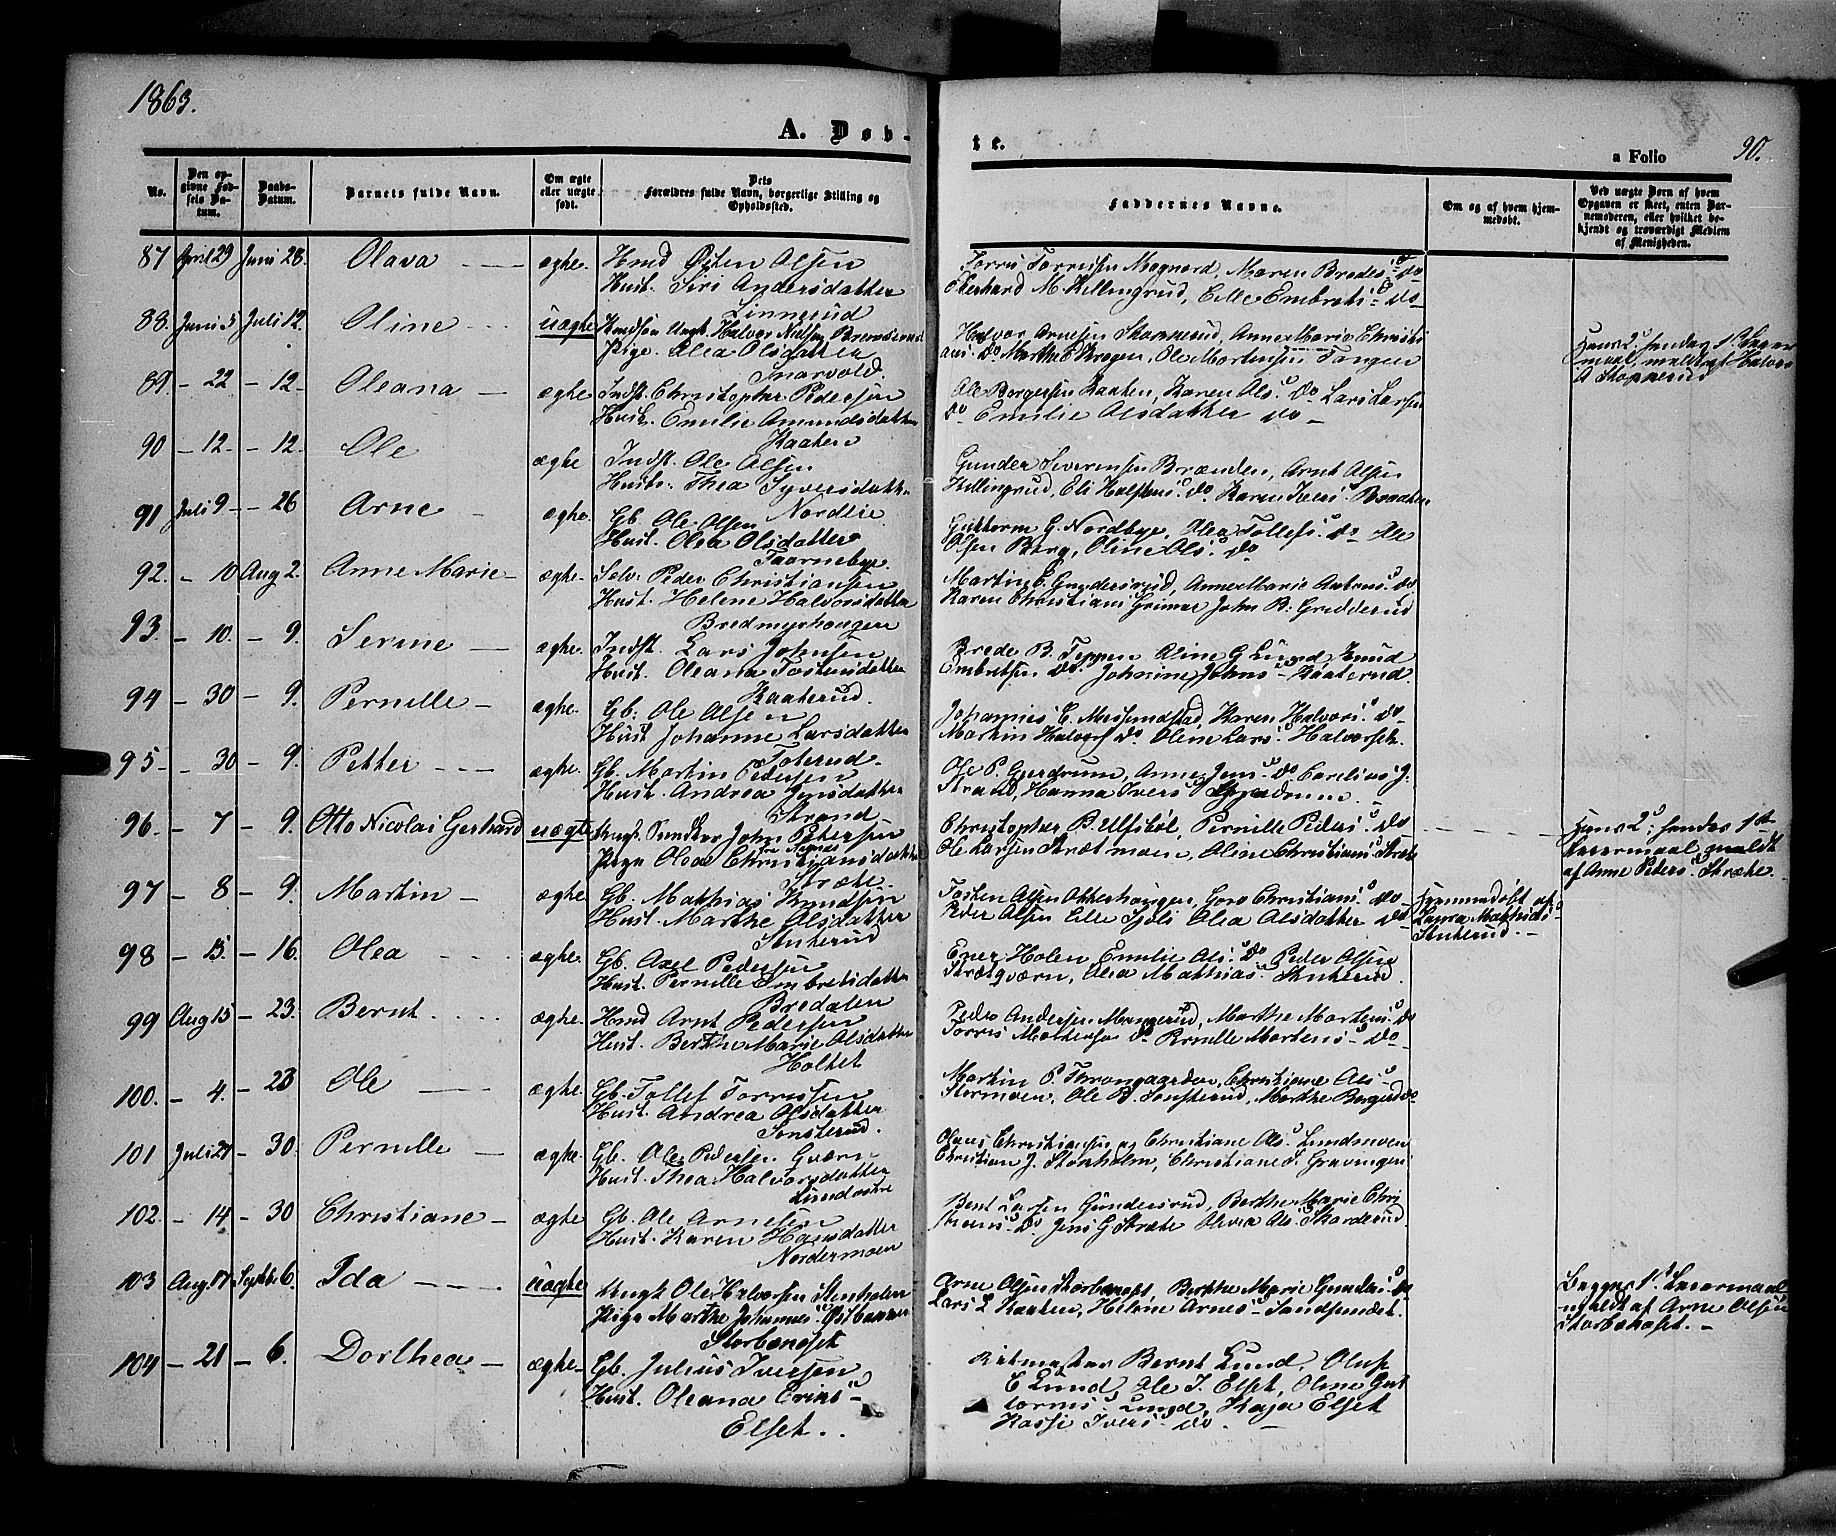 1863.
A. Døb-
te.
a Folio 90.
No.
Den op-
givne Fød-
sels Da-
tum.
Daabs-
Datum.
Barnets fulde Navn.
Om ægte
eller uægte
født.
Dets
Forældres fulde Navn, borgerlige Stilling og
Opholdssted.
Faddernes Navne.
Om og af hvem hjem-
medøbt.
Ved uægte Børn af hvem
Opgaven er skeet, enten Bar-
nemoderen, eller hvilket be-
kjendt og troværdigt Medlem
af Menigheden.
87 April 29 Juni 28. Olava ægte.
Hmd Østen Olsen
Hust. Siri Andersdatter
Linnerud
88. Juni 5 Juli 12. Oline uægte
Pige Olea Olsdatter
Snarvold.
Halvor Arnesen Stopperud, Anne Marie Christi
ans. Do Marthe E Krogen, Ole Mortensen Tangen
89. - 22 - 12. Oleana ægte
Indst. Christopher Pedersen
Hust. Emilie Amundsdatter
Kaaten
Ole Børgersen Kaaten, Karen Ols. Do Lars Larsen
Do Emilie Olsdatter Do
90 - 12. - 12. Ole ægte
Indst. Ole Olsen
Hust. Thea Syversdatter
Nordlie
Gunder Severensen Brænden, Arnt Olsen
Killingrud, Eli Halstens. Do. Karen Ivers. Braaten
91 Juli 9 - 26 Arne ægte.
Gb. Ole Olsen
Hust. Olea Olsdatter
Taarnebye
Guttorm G. Nordbye, Olea Tollefs. Do Ole
Olsen Berg, Oline Ols. Do
92. - 10 Aug 2. Anne Marie ægte
Selv. Peder Christiansen
Hust. Helene Halvorsdatter
Bredmyrhaugen
Martin E. Gundersrud, Anne Marie
Karen Christians Grimar John B. Gredderud
93. - 10. - 9. Serine ægte.
Indst. Lars Johnsen
Hust. Oleana Tostensdatter
Kaaterud.
Brede B. Teppen Oline G Lund, Knud
Embretsen Do. Johnine Johns. Kaaterud.
94 - 30 - 9. Pernille ægte.
Gb. Ole Olsen
Hust Johanne Larsdatter
Toterud
Johannes E. Karen Halvors. Do
Martin Halvors. Do. Oline Lars. Halvorset.
95. - 30 - 9. Petter ægte.
Gb. Martin Pedersen
Hust. Andrea Jensdatter
Strand
Ole P. Gjerdrum, Anne Jens. Do Carelius J.
Strand, Hanna Ivers Gjerdrum.
96. - 7 - 9. Otto Nicolai Gerhard uægte
Ungk. Sundbør John Petersen
Pige Olea Christiansdatter
Stræte
Christopher B. Ulfsbøl, Pernille Peders. Do
Ole Larsen Strætmoen, Oline Christians. Stræte
Hans 2. hendes 1ste
Leiermaal, meldt
af Anne Peters. Stræte.
97 - 8 - 9. Martin ægte.
Gb. Mathias Knudsen
Hust. Marthe Olsdatter
Stuterud
Tosten Olsen Goro Christians. Do
Peder Olsen Lille Sjøli Olea Olsdatter Do
Hjemmedøbt af
Laura Mathias.
Stuterud.
98 - 15. - 16. Olea ægte.
Gb. Axel Pedersen
Hust. Pernille Embretsdatter
Bredalen
Ener Holen Emilie Ols. Do Peder Olsen
Strætqværn, Olea Mathias. Stuterud.
99 Aug 15 - 23. Bernt ægte.
Hmd Arnt Pedersen
Hust. Berthe Marie Olsdatter
Holtet
Peder Andersen Mangerud, Marthe Mortens. Do
Torris Mortensen Do Pernille Mortens. Do
100. - 4. - 23 Ole ægte.
Gb. Tollef Torrissen
Hust. Andrea Olsdatter
Sønsterud.
Martin P. Christiane Ols.
Stormoen, Ole B. Sønsterud, Marthe
101 Juli 27 - 30. Pernille ægte.
Gb. Ole Pedersen Qværn
Hust. Thea Halvorsdatter
Olaus Christiansen og Christiane Ols. Lundmoen
Christian J. Stenholm, Christiane
102. - 14 - 30 Christiane ægte
Gb. Ole Arnesen
Hust. Karen Hansdatter
Nordermoen
Bent Larsen Gundersrud, Berthe Marie Chri
stians. Do Jens G Stræte Olivia Ols. Skarderud.
103 Aug 17 Septbr 6. Ida uægte
Ungk. Ole Halvorsen Stenholm
Pige Marthe Johannes.
Storbænget
Arne Olsen Storbænget, Berthe Marie Do
Lars L Kaaten, Helene Arnes. Sandsundet.
Begges 1ste Leiermaal
meldt af Arne Olsen
Storbænget.
104 - 21 - 6. Dorthea ægte
Gb. Julius Iversen
Hust. Oleana Eriks.
Elset.
Ritmester Bernt Lund, Oluf
E Lund, Ole I. Elset, Oline Gut
torms. Lund, Kaja Elset
Ivers. Do.